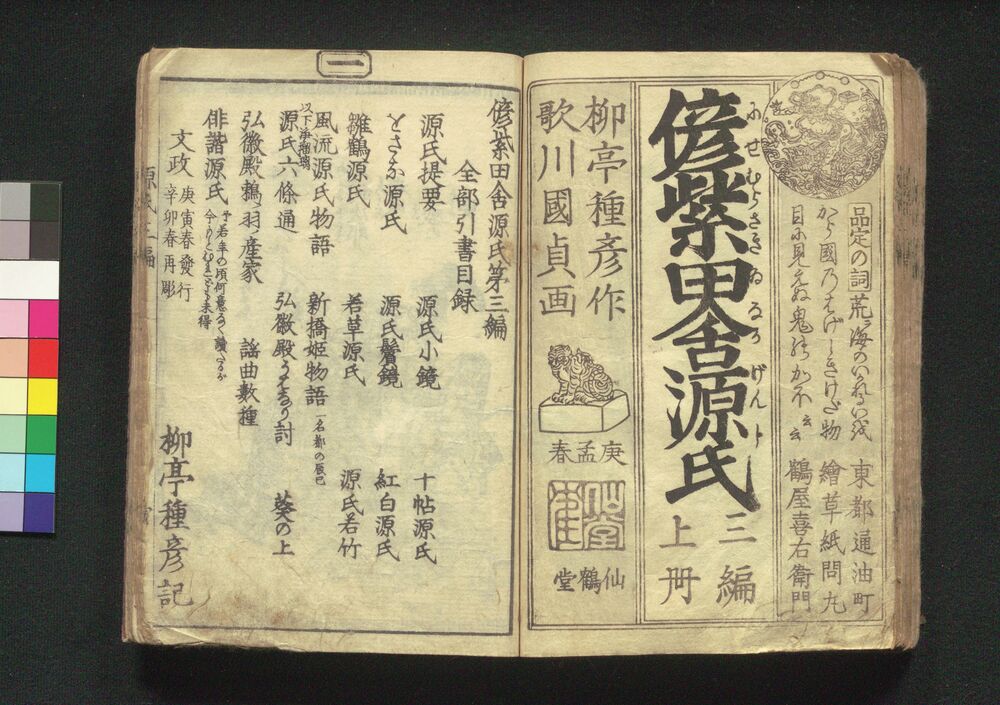 品定の詞
荒海のいかれるいを
から國のはげしきけだ物
目に見えぬ鬼のかほ云云
東都通油町
繪草紙問丸
鶴屋喜右衛門
偐紫田舎源氏
にせむらさきゐなかげんじ
三編
上册
柳亭種彦作
歌川國貞画
庚孟春
仙鶴堂
一
偐紫田舎源氏第三編
全部引書目録
源氏提要 源氏小鏡 十帖源氏
をさな源氏 源氏鬢鏡 紅白源氏
雛鶴源氏 若草源氏 源氏若竹
風流源氏物語 新橋姫物語 一名都の辰巳
以下浄瑠璃
源氏六條通 弘徽殿うはなり討 葵の上
弘徽殿鵜羽産家 謡曲數種
俳諧源氏
文政
庚寅春發行
辛卯春再彫
柳亭種彦記
源氏三編